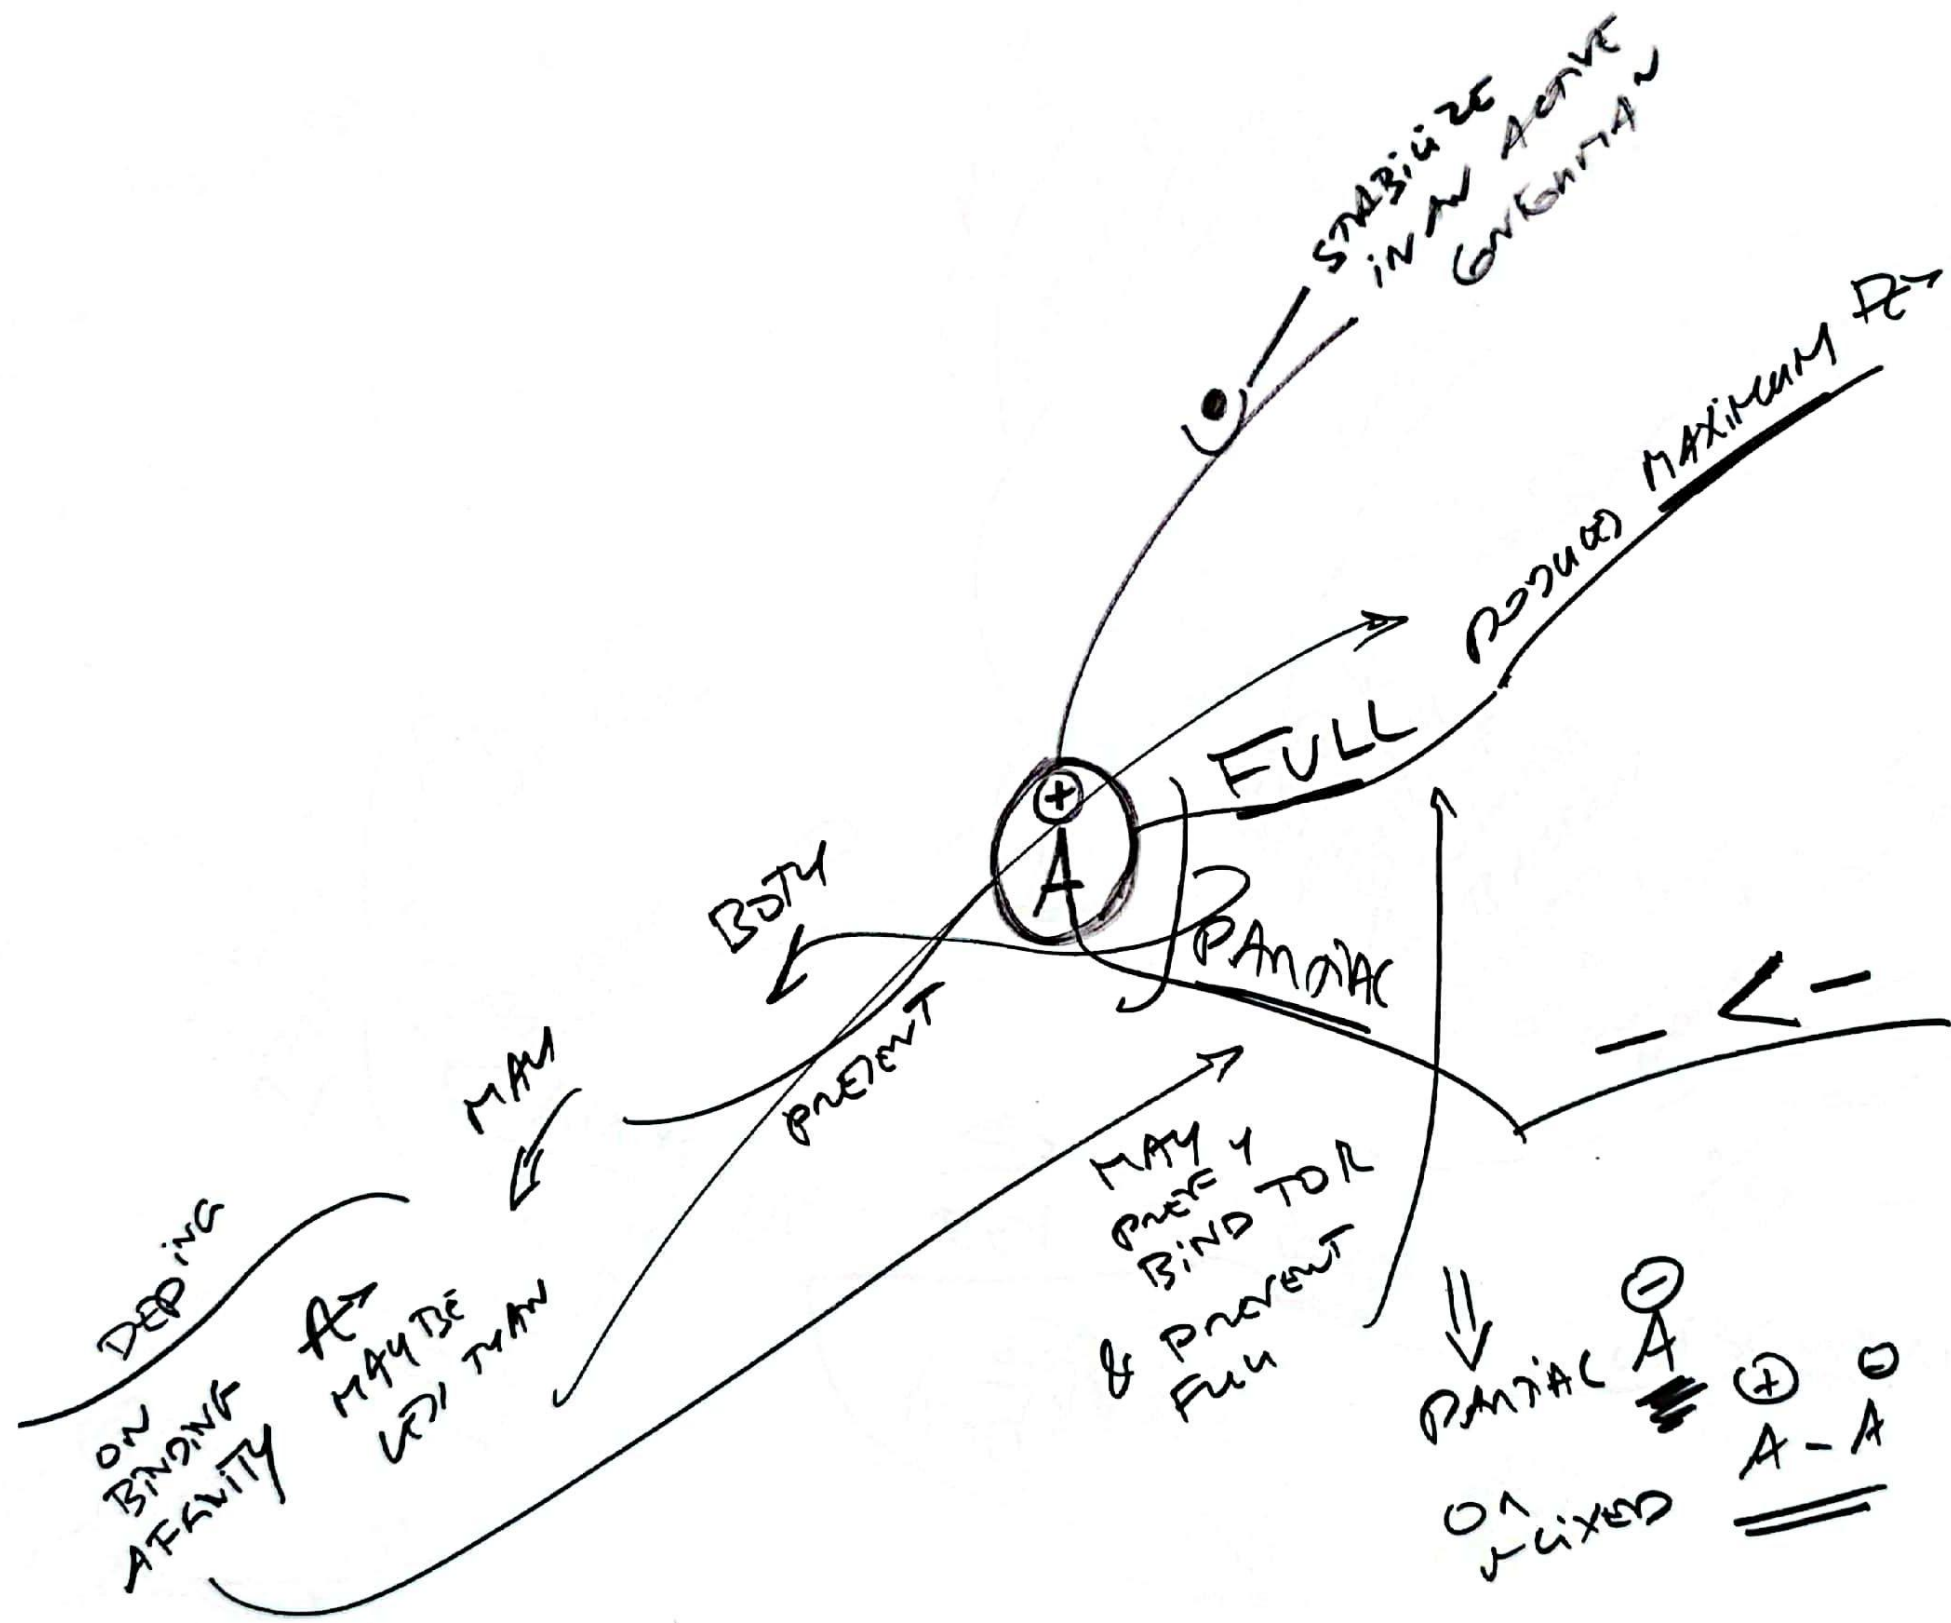 STABILIZE
IN AN ACTIVE
CONFORMAN
PRODUCES MAXIMUM
FULL
+
A
PARTIAL
- < -
BOTH
PRESENT
MAY
DEPING
ON
BINDING
AFFINITY
MAY BE
LESS THAN
MAY
PREF Y
BIND TO R
& PREVENT
FULL
PARTIAL A
-
+ -
A - A
OR
MIXED